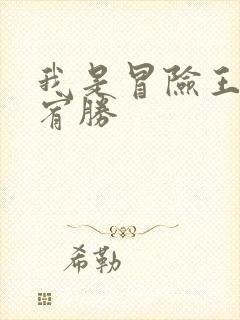 我是冒險王
宥勝
希勒